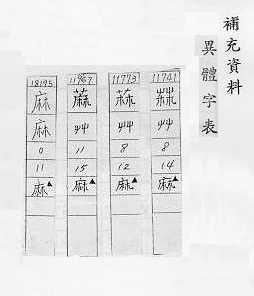 補充資料
異體字表
11741
艸
8
14
麻▲
11773
艸
8
12
麻▲
蔴
艸
11
15
麻▲
18195
麻
麻
0
11
麻▲